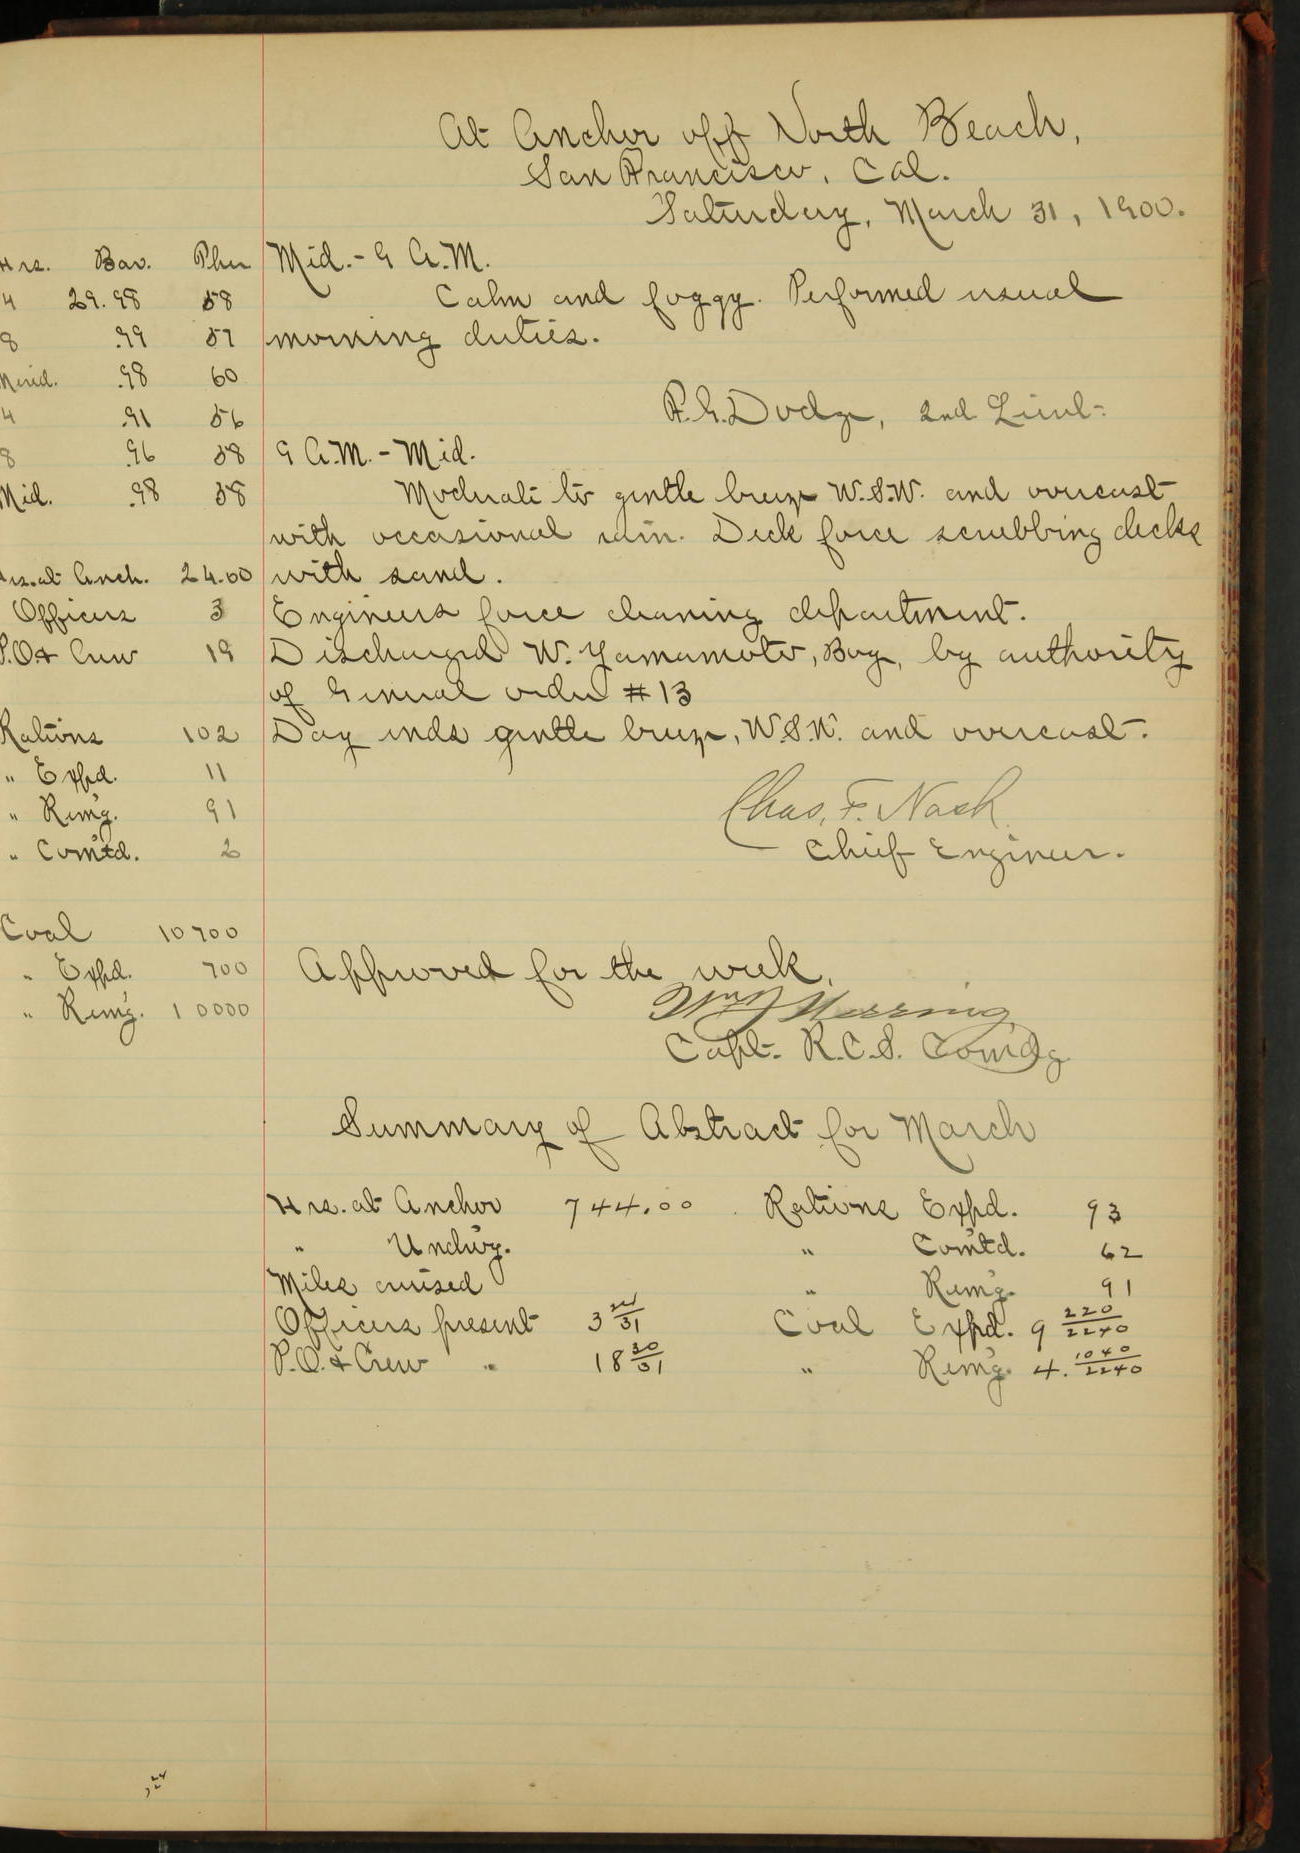 At Anchor off North Beach,
San Francisco, Cal.
Saturday, March 31, 1900.
Hrs. Bar. Ther
4 29.98 58
8 .99 57
Merid. .98 60
4 .91 56
8 .96 58
Mid. .98 58
Hrs. at Anch. 24.00
Officers 3
P.O.& Crew 19
Rations 102
" Expd. 11
" Rem'g. 91
" Com'td. 2
Coal 10700
" Expd. 700
" Rem'g. 10000
Mid. - 9 A.M.
Calm and foggy. Performed usual
morning duties.
F.G. Dodge, 2nd Lieut.
9 A.M. - Mid.
Moderate to gentle breeze W.S.W. and overcast
with occasional rain. Deck force scrubbing decks
with sand.
Engineers force cleaning department.
Discharged W. Yamamoto, Boy, by authority
of General order #13
Day ends gentle breeze, W.S.W. and overcast.
Chas. F. Nash
Chief Engineer.
Approved for the week.
Herring
Capt. R.C.S. Com'dg
Summary of Abstract for March
Hrs. at Anchor 744.00 Rations Expd. 93
" Underw'y. " Com'td. 62
Miles cruised " Rem'g. 91
Officers present 3 /31 Coal Expd. 9 220/2240
P.O. & Crew " 18 30/31 " Rem'g. 4. 1040/2240